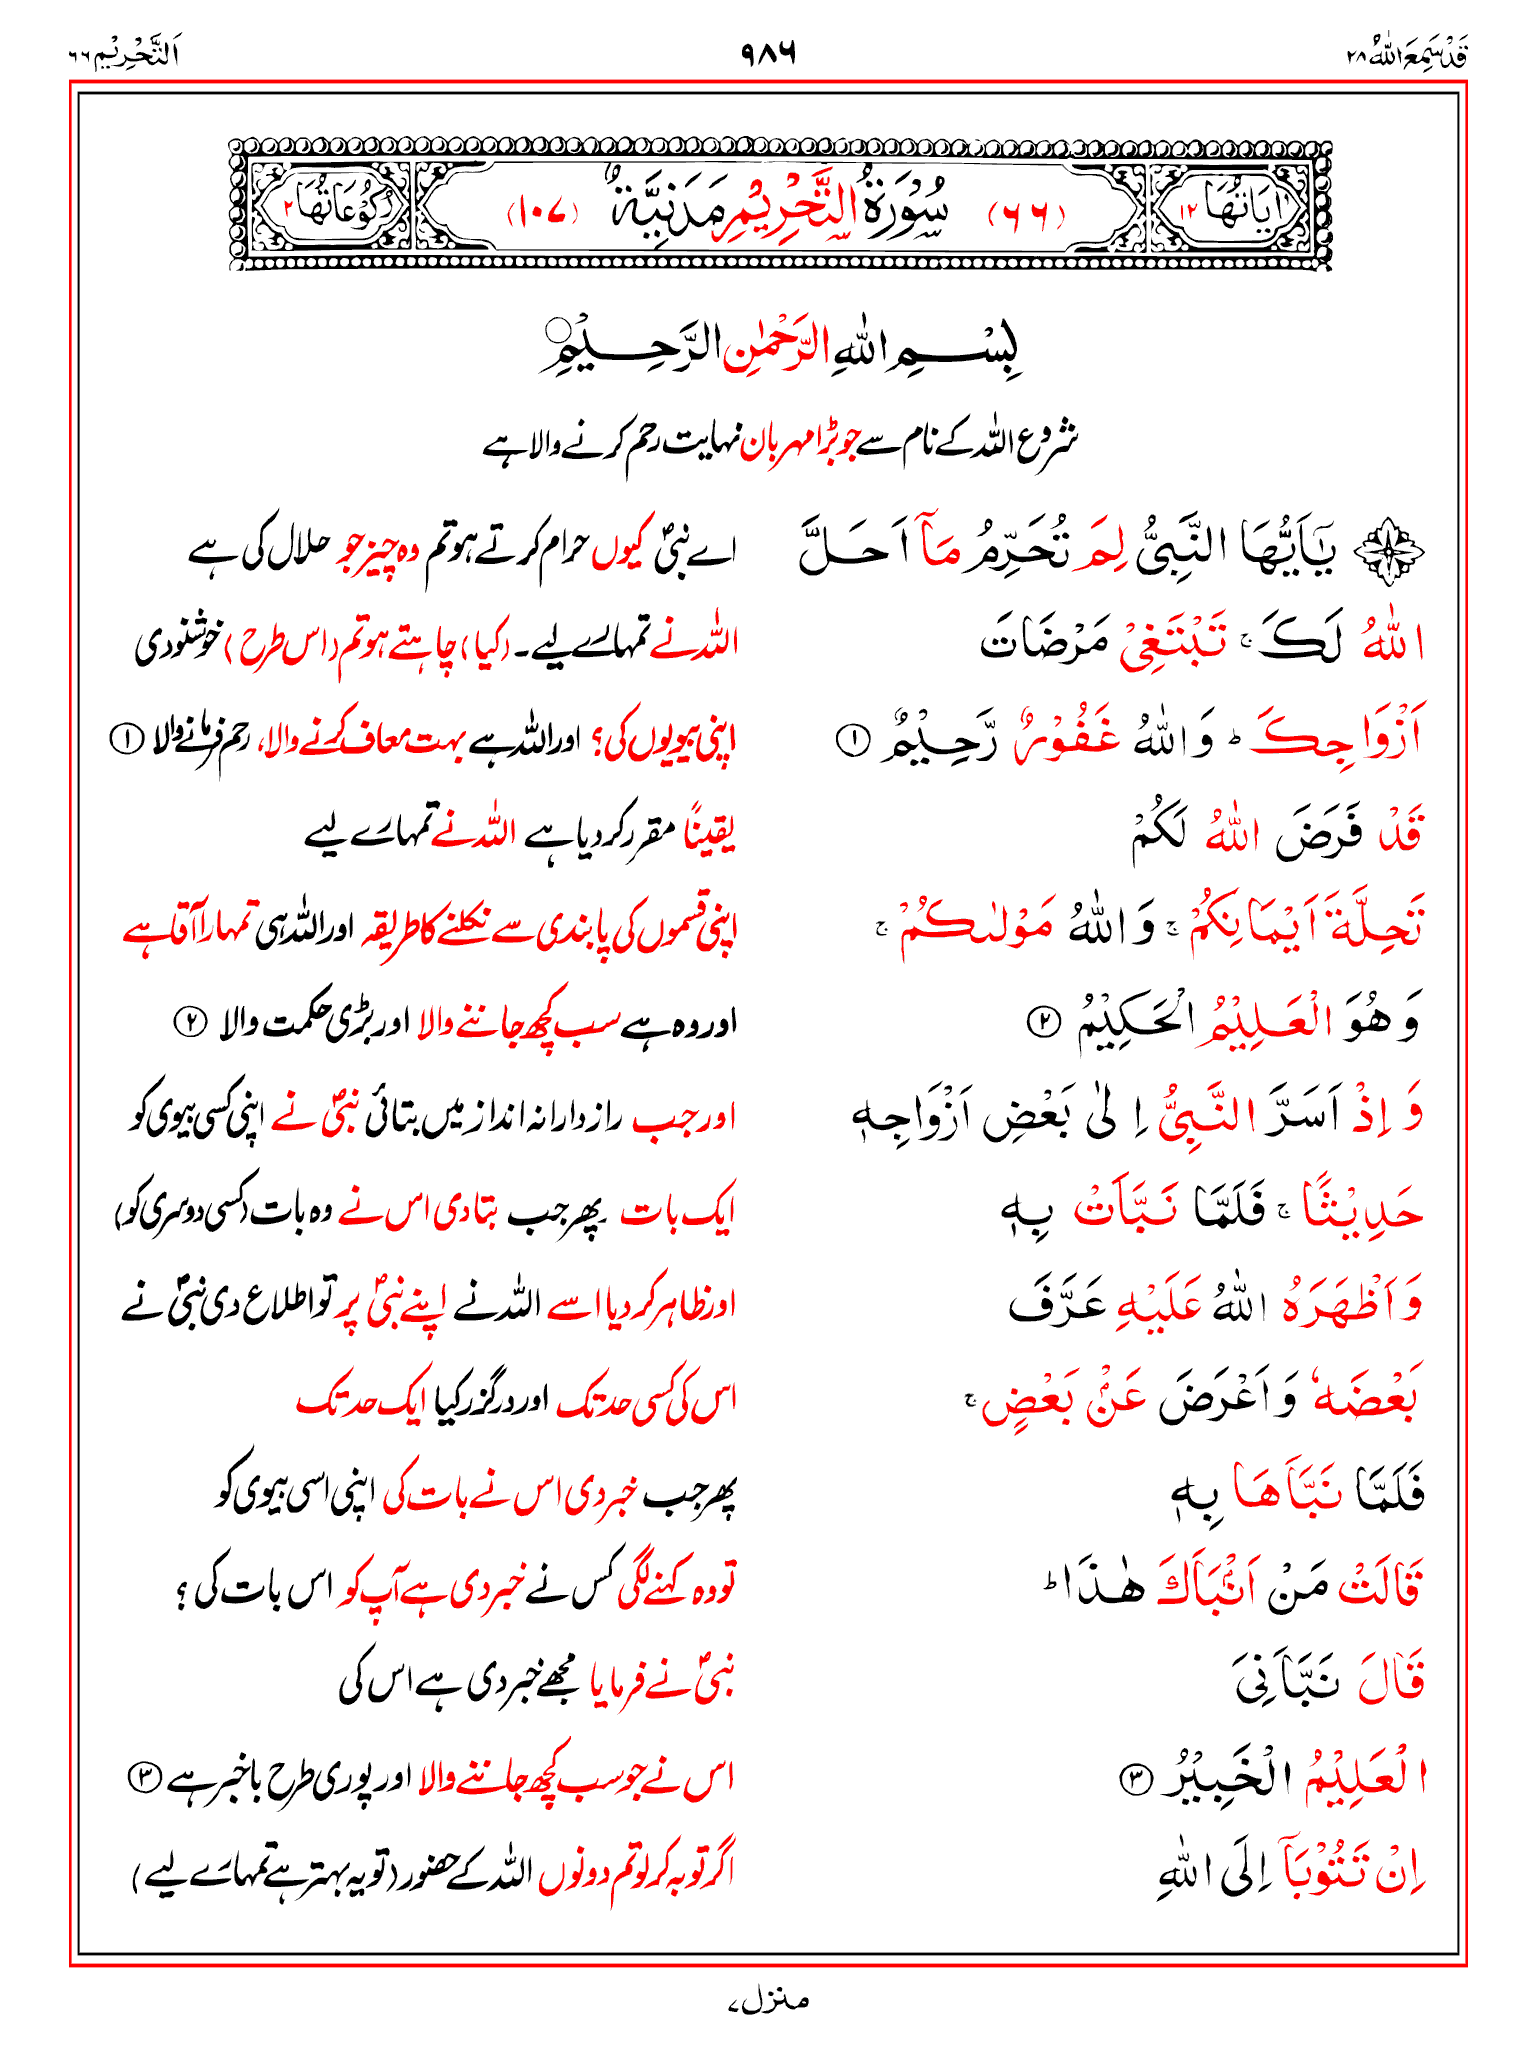 قَدْ سَمِعَ اللّٰهُ ۲۸
۹۸۶
اَلتَّحْرِيْم ۶۶
اٰيَاتُهَا ۱۲
(۶۶) سُوْرَةُ التَّحْرِيْمِ مَدَنِيَّةٌ (۱۰۷)
رُكُوْعَاتُهَا ۲
بِسْمِ اللّٰهِ الرَّحْمٰنِ الرَّحِيْمِ
شروع اللہ کے نام سے جو بڑا مہربان نہایت رحم کرنے والا ہے
يٰۤاَيُّهَا النَّبِىُّ لِمَ تُحَرِّمُ مَاۤ اَحَلَّ
اے نبیؐ کیوں حرام کرتے ہو تم وہ چیز جو حلال کی ہے
اللّٰهُ لَكَ ۚ تَبْتَغِىْ مَرْضَاتَ
اللہ نے تمہارے لیے۔ (کیا) چاہتے ہو تم (اس طرح) خوشنودی
اَزْوَاجِكَ ؕ وَاللّٰهُ غَفُوْرٌ رَّحِيْمٌ ۱
اپنی بیویوں کی؟ اور اللہ ہے بہت معاف کرنے والا، رحم فرمانے والا ۱
قَدْ فَرَضَ اللّٰهُ لَكُمْ
یقیناً مقرر کر دیا ہے اللہ نے تمہارے لیے
تَحِلَّةَ اَيْمَانِكُمْ ۚ وَاللّٰهُ مَوْلٰىكُمْ ۚ
اپنی قسموں کی پابندی سے نکلنے کا طریقہ اور اللہ ہی تمہارا آقا ہے
وَهُوَ الْعَلِيْمُ الْحَكِيْمُ ۲
اور وہ ہے سب کچھ جاننے والا اور بڑی حکمت والا ۲
وَاِذْ اَسَرَّ النَّبِىُّ اِلٰى بَعْضِ اَزْوَاجِهٖ
اور جب رازدارانہ انداز میں بتائی نبیؐ نے اپنی کسی بیوی کو
حَدِيْثًا ۚ فَلَمَّا نَبَّاَتْ بِهٖ
ایک بات پھر جب بتا دی اس نے وہ بات (کسی دوسری کو)
وَاَظْهَرَهُ اللّٰهُ عَلَيْهِ عَرَّفَ
اور ظاہر کر دیا اسے اللہ نے اپنے نبیؐ پر تو اطلاع دی نبیؐ نے
بَعْضَهٗ وَاَعْرَضَ عَنْۢ بَعْضٍ ۚ
اس کی کسی حد تک اور درگزر کیا ایک حد تک
فَلَمَّا نَبَّاَهَا بِهٖ
پھر جب خبر دی اس نے بات کی اپنی اسی بیوی کو
قَالَتْ مَنْ اَنْۢبَاَكَ هٰذَا ؕ
تو وہ کہنے لگی کس نے خبر دی ہے آپ کو اس بات کی؟
قَالَ نَبَّاَنِىَ
نبیؐ نے فرمایا مجھے خبر دی ہے اس کی
الْعَلِيْمُ الْخَبِيْرُ ۳
اس نے جو سب کچھ جاننے والا اور پوری طرح باخبر ہے ۳
اِنْ تَتُوْبَاۤ اِلَى اللّٰهِ
اگر توبہ کر لو تم دونوں اللہ کے حضور (تو یہ بہتر ہے تمہارے لیے)
منزل ۷